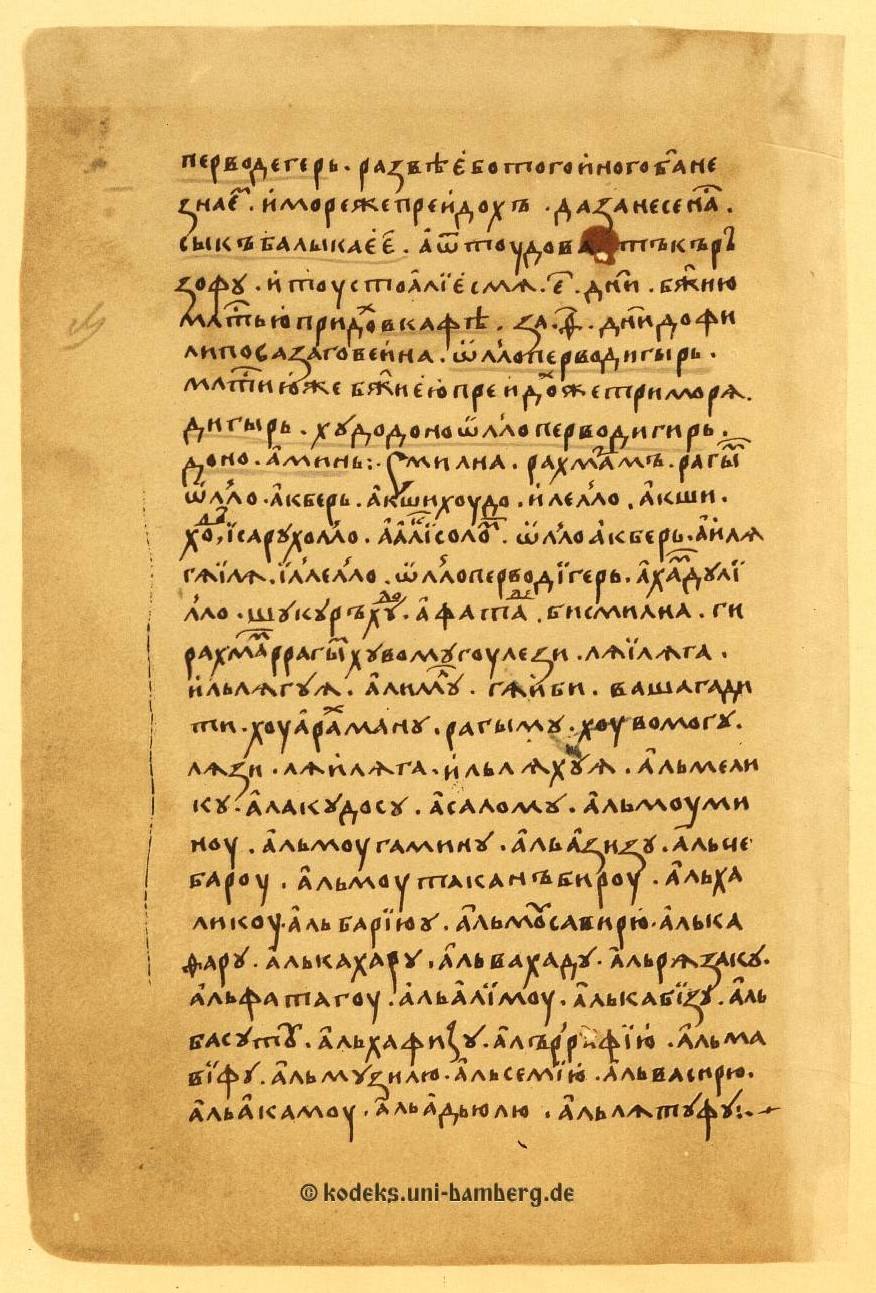 перводегерь. развѣе́ботогои҆ногоб҃ане
знае҆ⷨ. и҆мореже преи҆дохъ. дазанесена̑.
сыкъбалыкае҆е҆. а҆ѿтоудова тъкъръ
зофу. и҆тоустоа҆лїе҆смѧ. е҃. дн҃и. бж҃ию
млⷭ҇тьюприⷣо҆ⷯвкафѣ. за. ѳ҃. дн҃идофи
липосазаговеи҆на. ѡ҆ллоперводигырь.
млⷭ҇тию҆же бж҃иеюпреидоⷯжетриморѧ.
дигырь. худодоноѡ҆ллоперводигирь
доно. а҆минь:. Смилна. рахмⷨа҆мъ. рагыⷨ
ѡ҆лло. а҆кберь. а҆кшихоудо. и҆лелло. а҆кши.
хоⷣ, їсарухолло. а҆а҆лїсолоⷨ. ѡ҆ллоа҆кберь. а҆и҆лѧ
гѧїлѧ. їллелло. ѡ҆ллопервод̾їгерь. а҆хаⷨдулї
лло. шукуръхуⷣо. а҆фатаⷣ. бисмилна. ги
рахмⷨа҆ррагыⷨхувомугоулези. лѧїлѧга.
и҆льлѧгуѧ. а҆лимⷧу. гѧи҆би. вашагади
ти. хоуа҆раⷯману. рагыму. хоувомогу.
лѧзи. лѧи҆лѧга. и҆льлѧхуѧ. а҆льмели
ку. а҆лакудосу. а҆салому. а҆льмоуми
ноу. а҆льмоугамину. а҆льа҆зизу. а҆льче
бароу. а҆льмоутаканъбироу. а҆льха
ликоу. а҆льбарїюу. а҆льмоⷹсавирю. а҆лька
фару. а҆лькахару. а҆львахаду. а҆льрѧзаку.
а҆льфатагоу. а҆льа҆лїмоу. а҆лькабїзу. а҆ль
басуту. а҆льхафизу. а҆лъррафїю. а҆льма
вїфу. а҆льмузилю. а҆льсемїю. а҆львасирю.
а҆льа҆камоу. а҆льа҆дьюлю. а҆льлѧтуфу:.
© kodeks.uni-bamberg.de